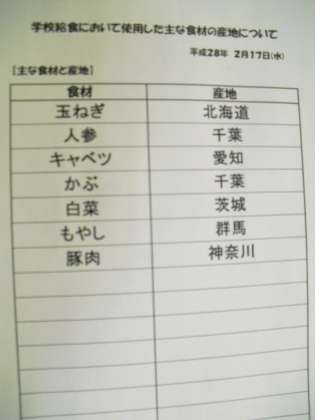 学校給食において使用した主な食材の産地について
平成28年 2月17日(水)
[主な食材と産地]
食材 産地
玉ねぎ 北海道
人参 千葉
キャベツ 愛知
かぶ 千葉
白菜 茨城
もやし 群馬
豚肉 神奈川